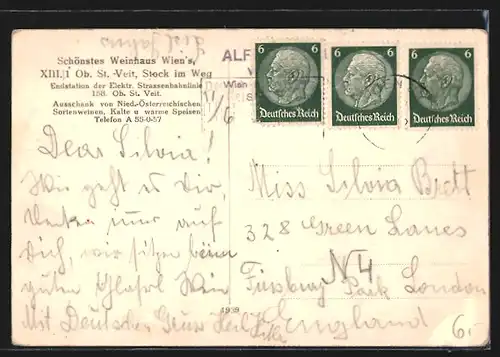 Schönstes Weinhaus Wien's,
XIII/1 Ob. St. Veit, Stock im Weg
Endstation der Elektr. Strassenbahnlinie
158. Ob. St. Veit.
Ausschank von Nied.-Österreichischen
Sortenweinen, Kalte u warme Speisen
Telefon A 55-0-57
ALF
Wien
6 6 6
Deutsches Reich Deutsches Reich Deutsches Reich
1/6
Dear Silvia!
Wie geht es Dir,
denken nur auf
Dich, wir sitzen beim
guten Wein
Mit Deutschen Gruss Heil
Miss Silvia Brett
328 Green Lanes
N4
Finsbury Park London
England
1939
6.